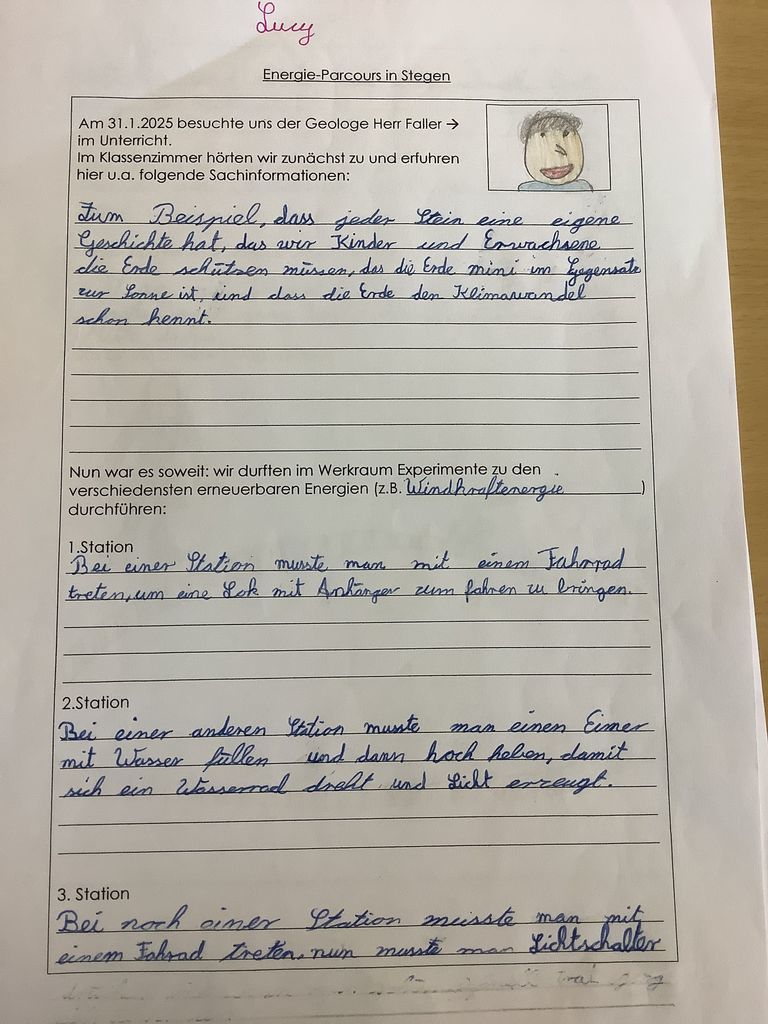 Lucy
Energie-Parcours in Stegen
Am 31.1.2025 besuchte uns der Geologe Herr Faller →
im Unterricht.
Im Klassenzimmer hörten wir zunächst zu und erfuhren
hier u.a. folgende Sachinformationen:
Zum Beispiel, dass jeder Stein eine eigene
Geschichte hat, das wir Kinder und Erwachsene
die Erde schützen müssen, das die Erde mini im Gegensatz
zur Sonne ist, und dass die Erde den Klimawandel
schon kennt.
Nun war es soweit: wir durften im Werkraum Experimente zu den
verschiedensten erneuerbaren Energien (z.B. Windkraftenergie)
durchführen:
1.Station
Bei einer Station musste man mit einem Fahrrad
treten, um eine Lok mit Anhänger zum fahren zu bringen.
2.Station
Bei einer anderen Station musste man einen Eimer
mit Wasser füllen und dann hoch heben, damit
sich ein Wasserrad dreht und Licht erzeugt.
3. Station
Bei noch einer Station musste man mit
einem Fahrad treten, nun musste man Lichtschalter